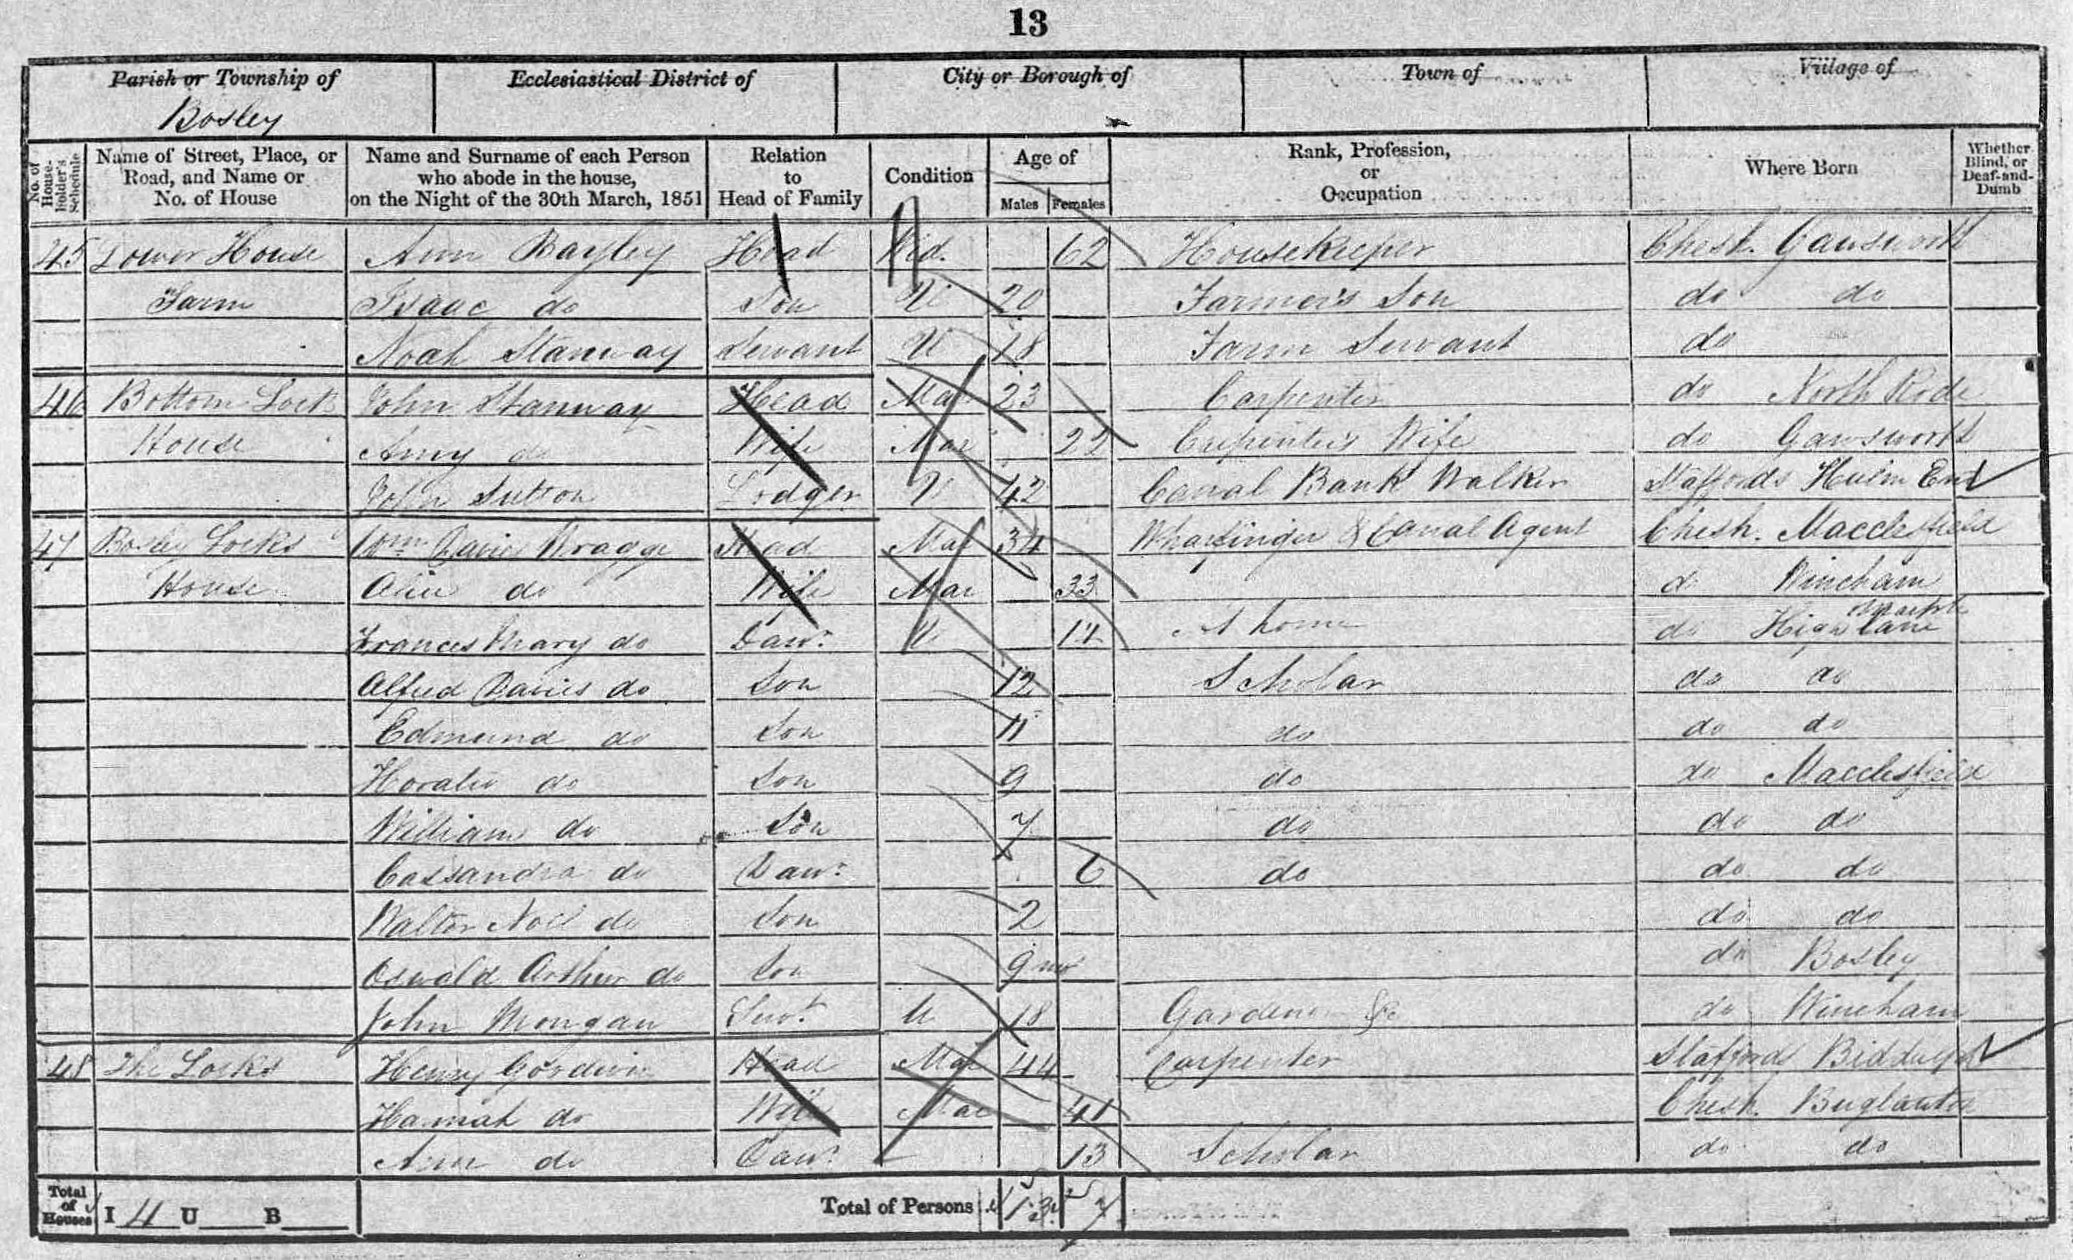 13
Parish or Township of Ecclesiastical District of City or Borough of Town of Village of
Bosley
No. of House-holder's Schedule
Name of Street, Place, or Road, and Name or No. of House
Name and Surname of each Person who abode in the house, on the Night of the 30th March, 1851
Relation to Head of Family
Condition
Age of
Males Females
Rank, Profession, or Occupation
Where Born
Whether Blind, or Deaf-and-Dumb
45 Lower House Ann Bayley Head Wid. 62 Housekeeper Chesh. Gawsworth
Farm Isaac do Son U 20 Farmer's Son do do
Noah Stanway Servant U 18 Farm Servant do
46 Bottom Lock John Stanway Head Mar 23 Carpenter do North Rode
House Amy do Wife Mar 22 Carpenter's Wife do Gawsworth
John Sutton Lodger U 42 Canal Bank Walker Staffords Hulm End
47 Bosley Locks Wm Davies Wragge Head Mar 34 Wharfinger & Canal Agent Chesh. Macclesfield
House Alice do Wife Mar 33 d Wincham
Frances Mary do Dawr. U At home do High Lane
Alfred Davies do Son 12 Scholar do do
Edmund do Son 11 do do do
Horatio do Son 9 do do Macclesfield
William do Son 7 do do do
Cassandra do Dawr. 6 do do do
Walter Noel do Son 2 do do
Oswald Arthur do Son 9 mo do Bosley
John Mongan Servt. U 18 Gardener &c do Wincham
48 The Locks Henry Goodwin Head Mar 44 Carpenter Stafford Biddulph
Hannah do Wife Mar 41 Chesh. Buglawton
Ann do Dawr. 13 Scholar do do
Total of Houses I 4 U B Total of Persons 13 7